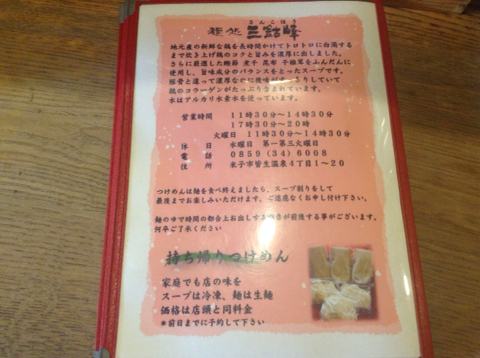 さんこほう
麺処 三鈷峰
地元産の新鮮な鶏を長時間かけてトロトロに白濁する
まで炊き上げ鶏のコクと旨みを濃厚に出しました。
さらに厳選した鰹節 煮干 昆布 干椎茸をふんだんに
使用し、旨味成分のバランスをとったスープです。
豚骨と違って濃厚なのに後味がすっきりしていて
鶏のコラーゲンがたっぷり含まれています。
水はアルカリ水素水を使っています。
営業時間 11時30分～14時30分
17時30分～20時
火曜日 11時30分～14時30分
休 日 水曜日 第一第三火曜日
電 話 0859(34)6008
住 所 米子市皆生温泉4丁目1～20
つけめんは麺を食べ終えましたら、スープ割りをして
最後までお楽しみいただけます。ご遠慮なくお申し付け下さい。
麺のゆで時間の都合上お出しする順番が前後する事がございます。
何卒ご了承ください
持ち帰りつけめん
家庭でも店の味を
スープは冷凍、麺は生麺
価格は店頭と同料金
*前日までに予約して下さい